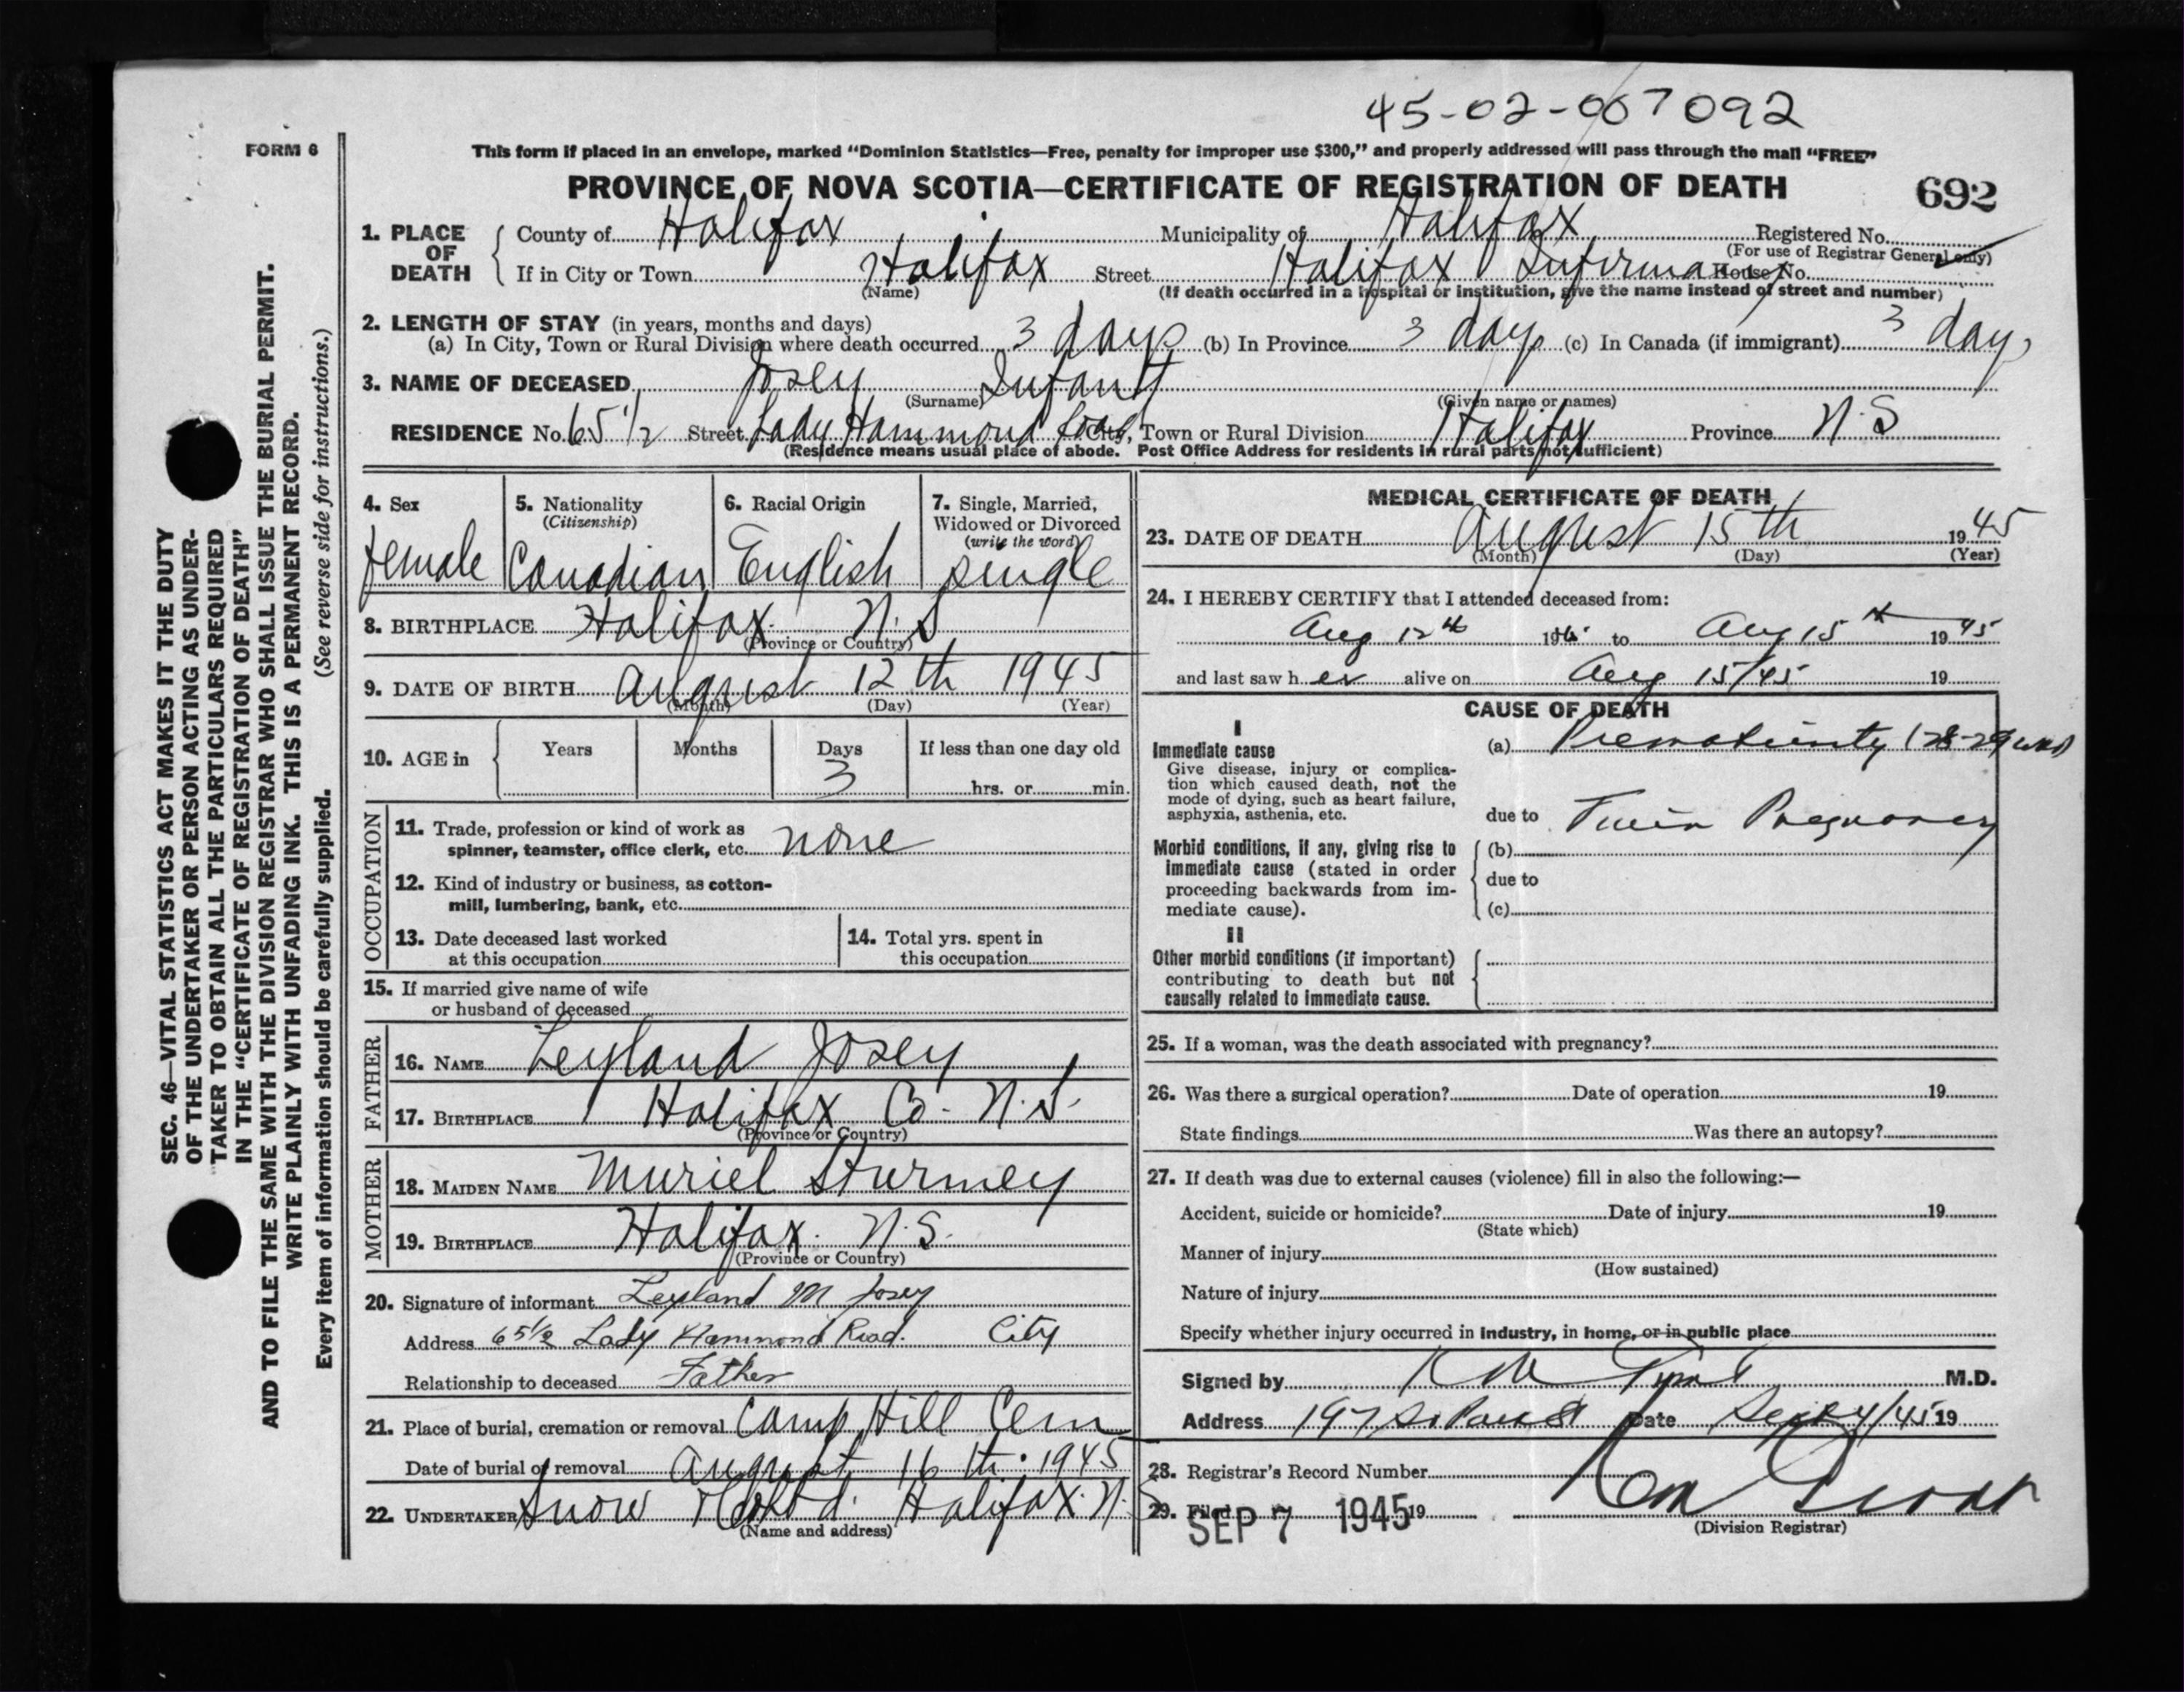 45-02-007092
FORM 6
This form if placed in an envelope, marked "Dominion Statistics—Free, penalty for improper use $300," and properly addressed will pass through the mail "FREE"
PROVINCE OF NOVA SCOTIA—CERTIFICATE OF REGISTRATION OF DEATH
692
1. PLACE OF DEATH
County of Halifax Municipality of Halifax Registered No.
(For use of Registrar General only)
If in City or Town Halifax Street Halifax Infirmary House No.
(Name) (If death occurred in a hospital or institution, give the name instead of street and number)
2. LENGTH OF STAY (in years, months and days)
(a) In City, Town or Rural Division where death occurred 3 days (b) In Province 3 days (c) In Canada (if immigrant) 3 days
3. NAME OF DECEASED Josey Infant
(Surname) (Given name or names)
RESIDENCE No. 65 1/2 Street Lady Hammond Road City, Town or Rural Division Halifax Province N.S
(Residence means usual place of abode. Post Office Address for residents in rural parts not sufficient)
SEC. 46—VITAL STATISTICS ACT MAKES IT THE DUTY
OF THE UNDERTAKER OR PERSON ACTING AS UNDER-
TAKER TO OBTAIN ALL THE PARTICULARS REQUIRED
IN THE "CERTIFICATE OF REGISTRATION OF DEATH"
AND TO FILE THE SAME WITH THE DIVISION REGISTRAR WHO SHALL ISSUE THE BURIAL PERMIT.
WRITE PLAINLY WITH UNFADING INK. THIS IS A PERMANENT RECORD.
Every item of information should be carefully supplied. (See reverse side for instructions.)
4. Sex
female
5. Nationality
(Citizenship)
Canadian
6. Racial Origin
English
7. Single, Married,
Widowed or Divorced
(write the word)
single
8. BIRTHPLACE Halifax N.S
(Province or Country)
9. DATE OF BIRTH August 12th 1945
(Month) (Day) (Year)
10. AGE in
Years Months Days If less than one day old
3 hrs. or min.
OCCUPATION
11. Trade, profession or kind of work as
spinner, teamster, office clerk, etc. none
12. Kind of industry or business, as cotton-
mill, lumbering, bank, etc.
13. Date deceased last worked
at this occupation
14. Total yrs. spent in
this occupation
15. If married give name of wife
or husband of deceased
FATHER
16. NAME Leyland Josey
17. BIRTHPLACE Halifax Co. N.S.
(Province or Country)
MOTHER
18. MAIDEN NAME Muriel Sturmey
19. BIRTHPLACE Halifax. N.S.
(Province or Country)
20. Signature of informant Leyland M Josey
Address 65 1/2 Lady Hammond Road. City
Relationship to deceased Father
21. Place of burial, cremation or removal Camp Hill Cem
Date of burial or removal August 16th. 1945
22. UNDERTAKER Snow & Co Ltd. Halifax. N.S
(Name and address)
MEDICAL CERTIFICATE OF DEATH
23. DATE OF DEATH August 15th 1945
(Month) (Day) (Year)
24. I HEREBY CERTIFY that I attended deceased from:
Aug 12th 19 to Aug 15th 1945
and last saw h er alive on Aug 15/45 19
CAUSE OF DEATH
I
Immediate cause
Give disease, injury or complica-
tion which caused death, not the
mode of dying, such as heart failure,
asphyxia, asthenia, etc.
(a) Prematurity (28-29 wks)
due to Twin Pregnancy
Morbid conditions, if any, giving rise to
immediate cause (stated in order
proceeding backwards from im-
mediate cause).
(b)
due to
(c)
II
Other morbid conditions (if important)
contributing to death but not
causally related to immediate cause.
25. If a woman, was the death associated with pregnancy?
26. Was there a surgical operation? Date of operation 19
State findings Was there an autopsy?
27. If death was due to external causes (violence) fill in also the following:—
Accident, suicide or homicide? Date of injury 19
(State which)
Manner of injury
(How sustained)
Nature of injury
Specify whether injury occurred in industry, in home, or in public place
Signed by M.D.
Address 197 Date Sept 4/45 19
28. Registrar's Record Number
29. Filed SEP 7 1945 19
(Division Registrar)